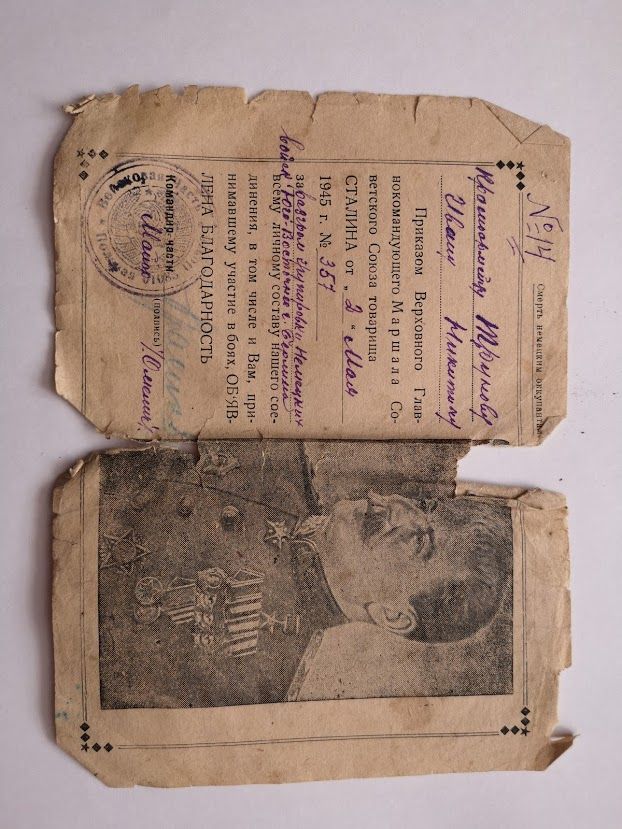 Смерть немецким оккупантам
№ 14
Красноармейцу Трунову
Ивану Никитичу
Приказом Верховного Глав-
нокомандующего Маршала Со-
ветского Союза товарища
СТАЛИНА от „ 2 “ Мая
1945 г. № 357
за разгром группировки Немецких
войск Юго-Восточнее г. Берлина
всему личному составу нашего сое-
динения, в том числе и Вам, при-
нимавшему участие в боях, ОБ'ЯВ-
ЛЕНА БЛАГОДАРНОСТЬ
Командир части
Майор
(подпись)